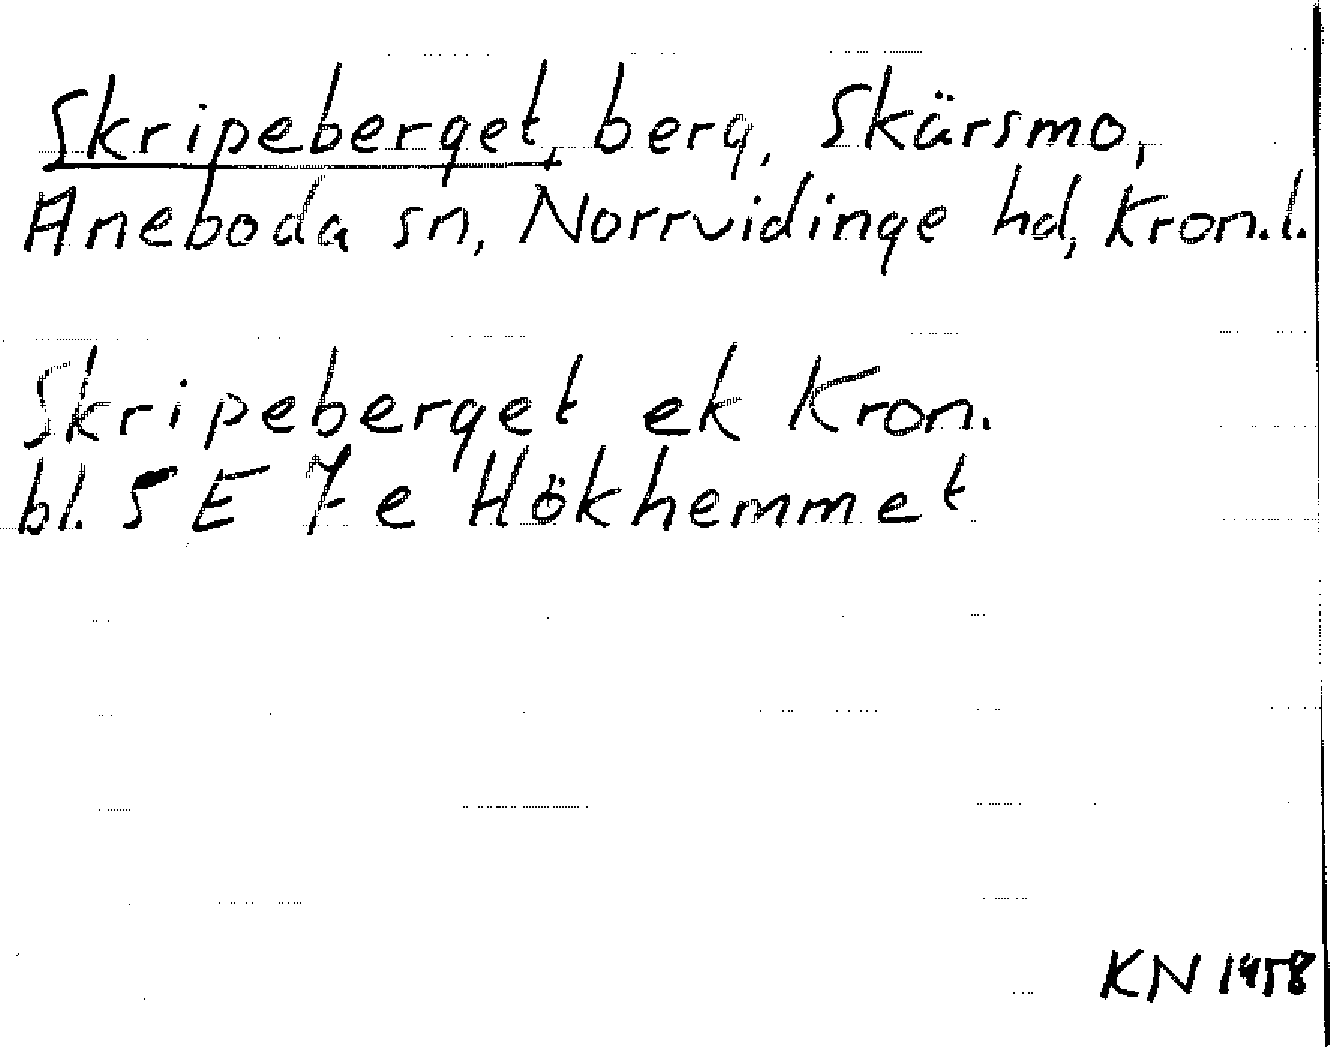 Skripeberget, berg, Skärsmo,
Aneboda sn, Norrvidinge hd, Kron.l.
Skripeberget ek Kron.
bl. 5 E 7 e Hökhemmet
KN 1958